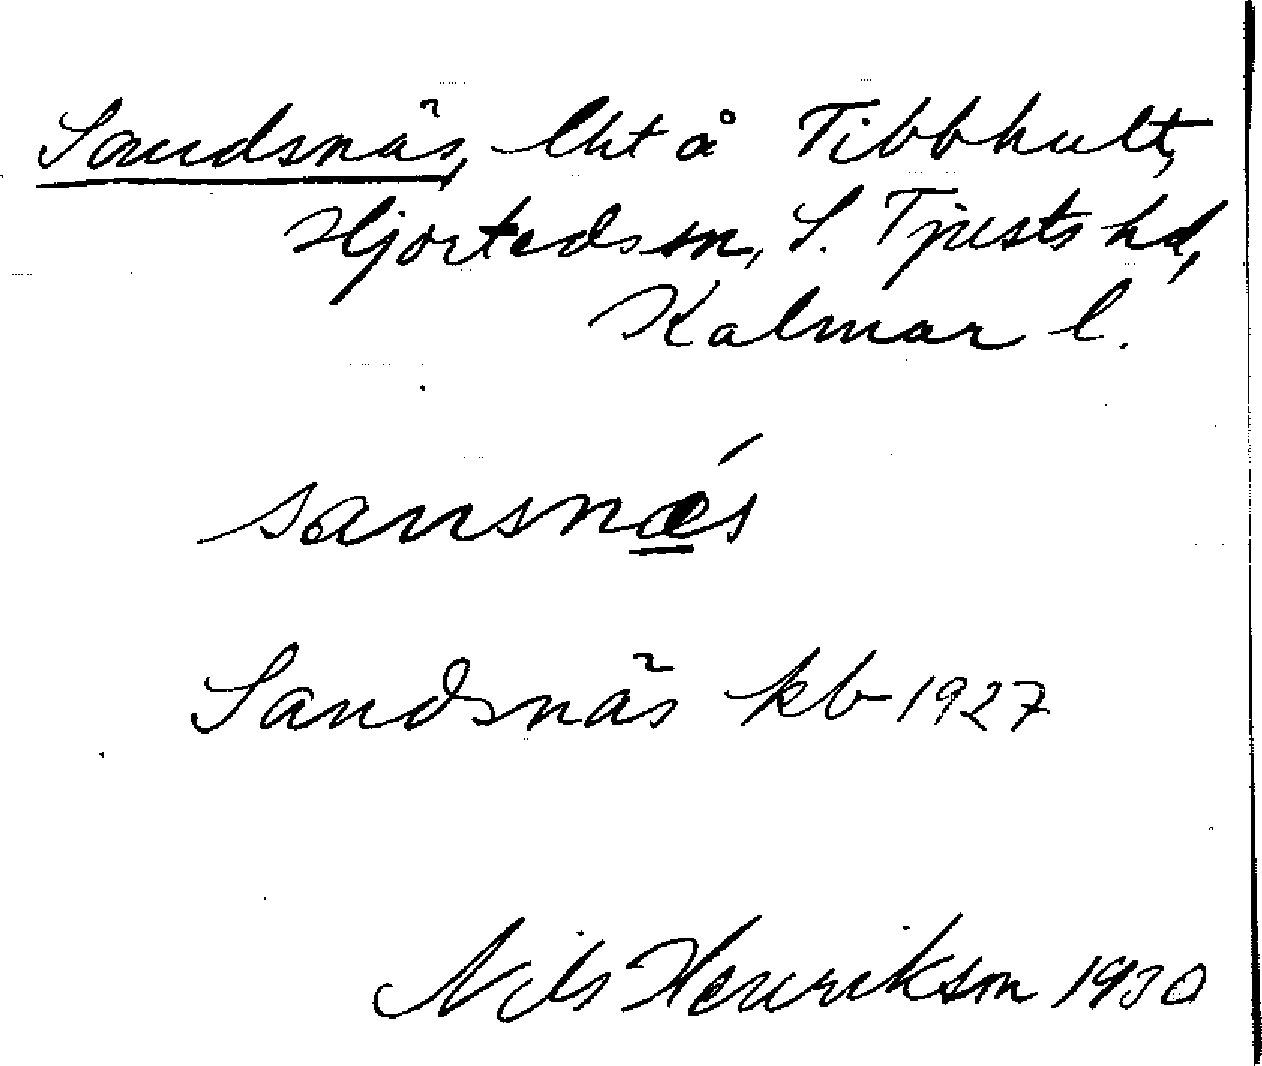 Sandsnäs, lht å Tibbhult,
Hjorteds sn, S. Tjusts hd,
Kalmar l.
sansnǽs
Sandsnäs kb 1927
Nils Henrikson 1930